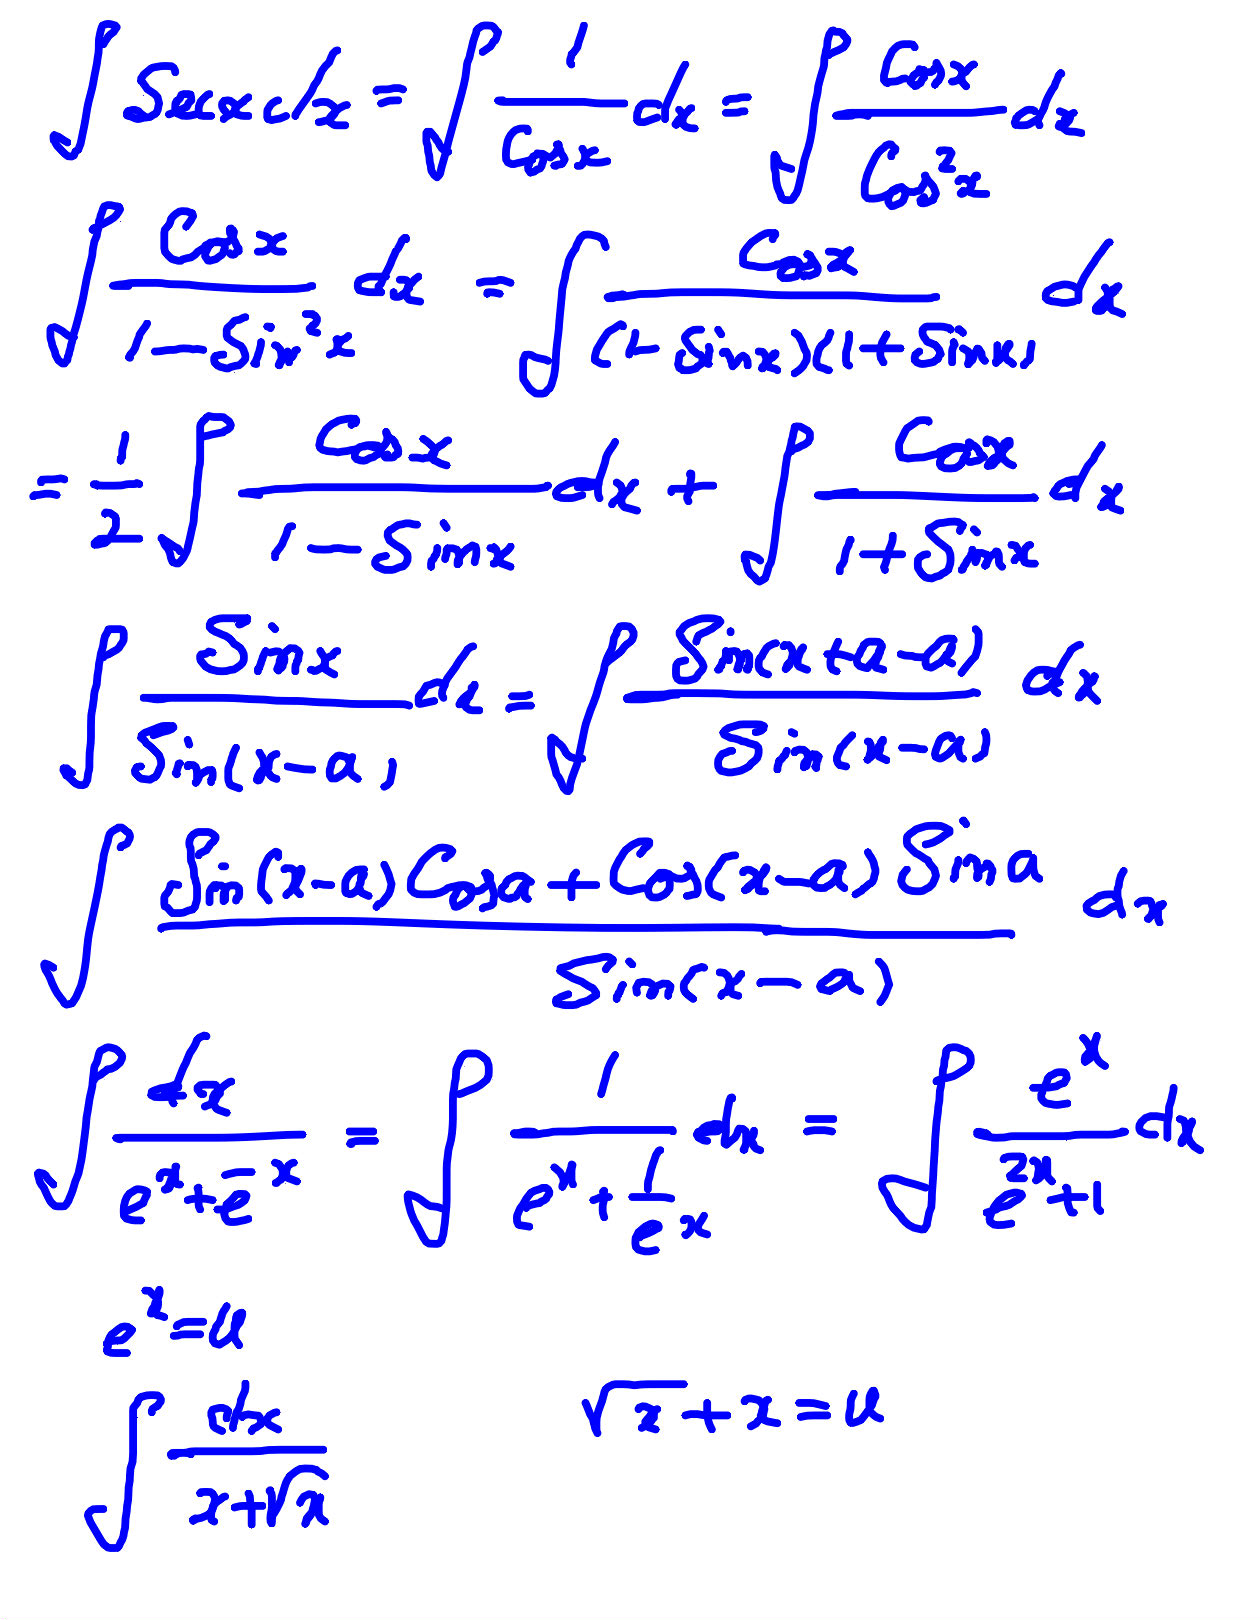 ∫ Secx dx = ∫ 1/Cosx dx = ∫ Cosx/Cos²x dx
∫ Cosx/(1-Sin²x) dx = ∫ Cosx/((1-Sinx)(1+Sinx)) dx
= 1/2 ∫ Cosx/(1-Sinx) dx + ∫ Cosx/(1+Sinx) dx
∫ Sinx/Sin(x-a) dx = ∫ Sin(x+a-a)/Sin(x-a) dx
∫ (Sin(x-a)Cosa+Cos(x-a)Sina)/Sin(x-a) dx
∫ dx/(eˣ+e⁻ˣ) = ∫ 1/(eˣ+1/eˣ) dx = ∫ eˣ/(e²ˣ+1) dx
eˣ=u
∫ dx/(x+√x) √x+x=u